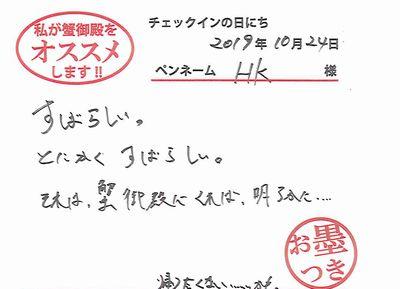 私が蟹御殿を
オススメ
します!!
チェックインの日にち
2019年10月24日
ペンネーム HK 様
すばらしい。
とにかく すばらしい。
それは、蟹御殿にくれば、明らかに....
お墨
つき
帰りたくない......かも。